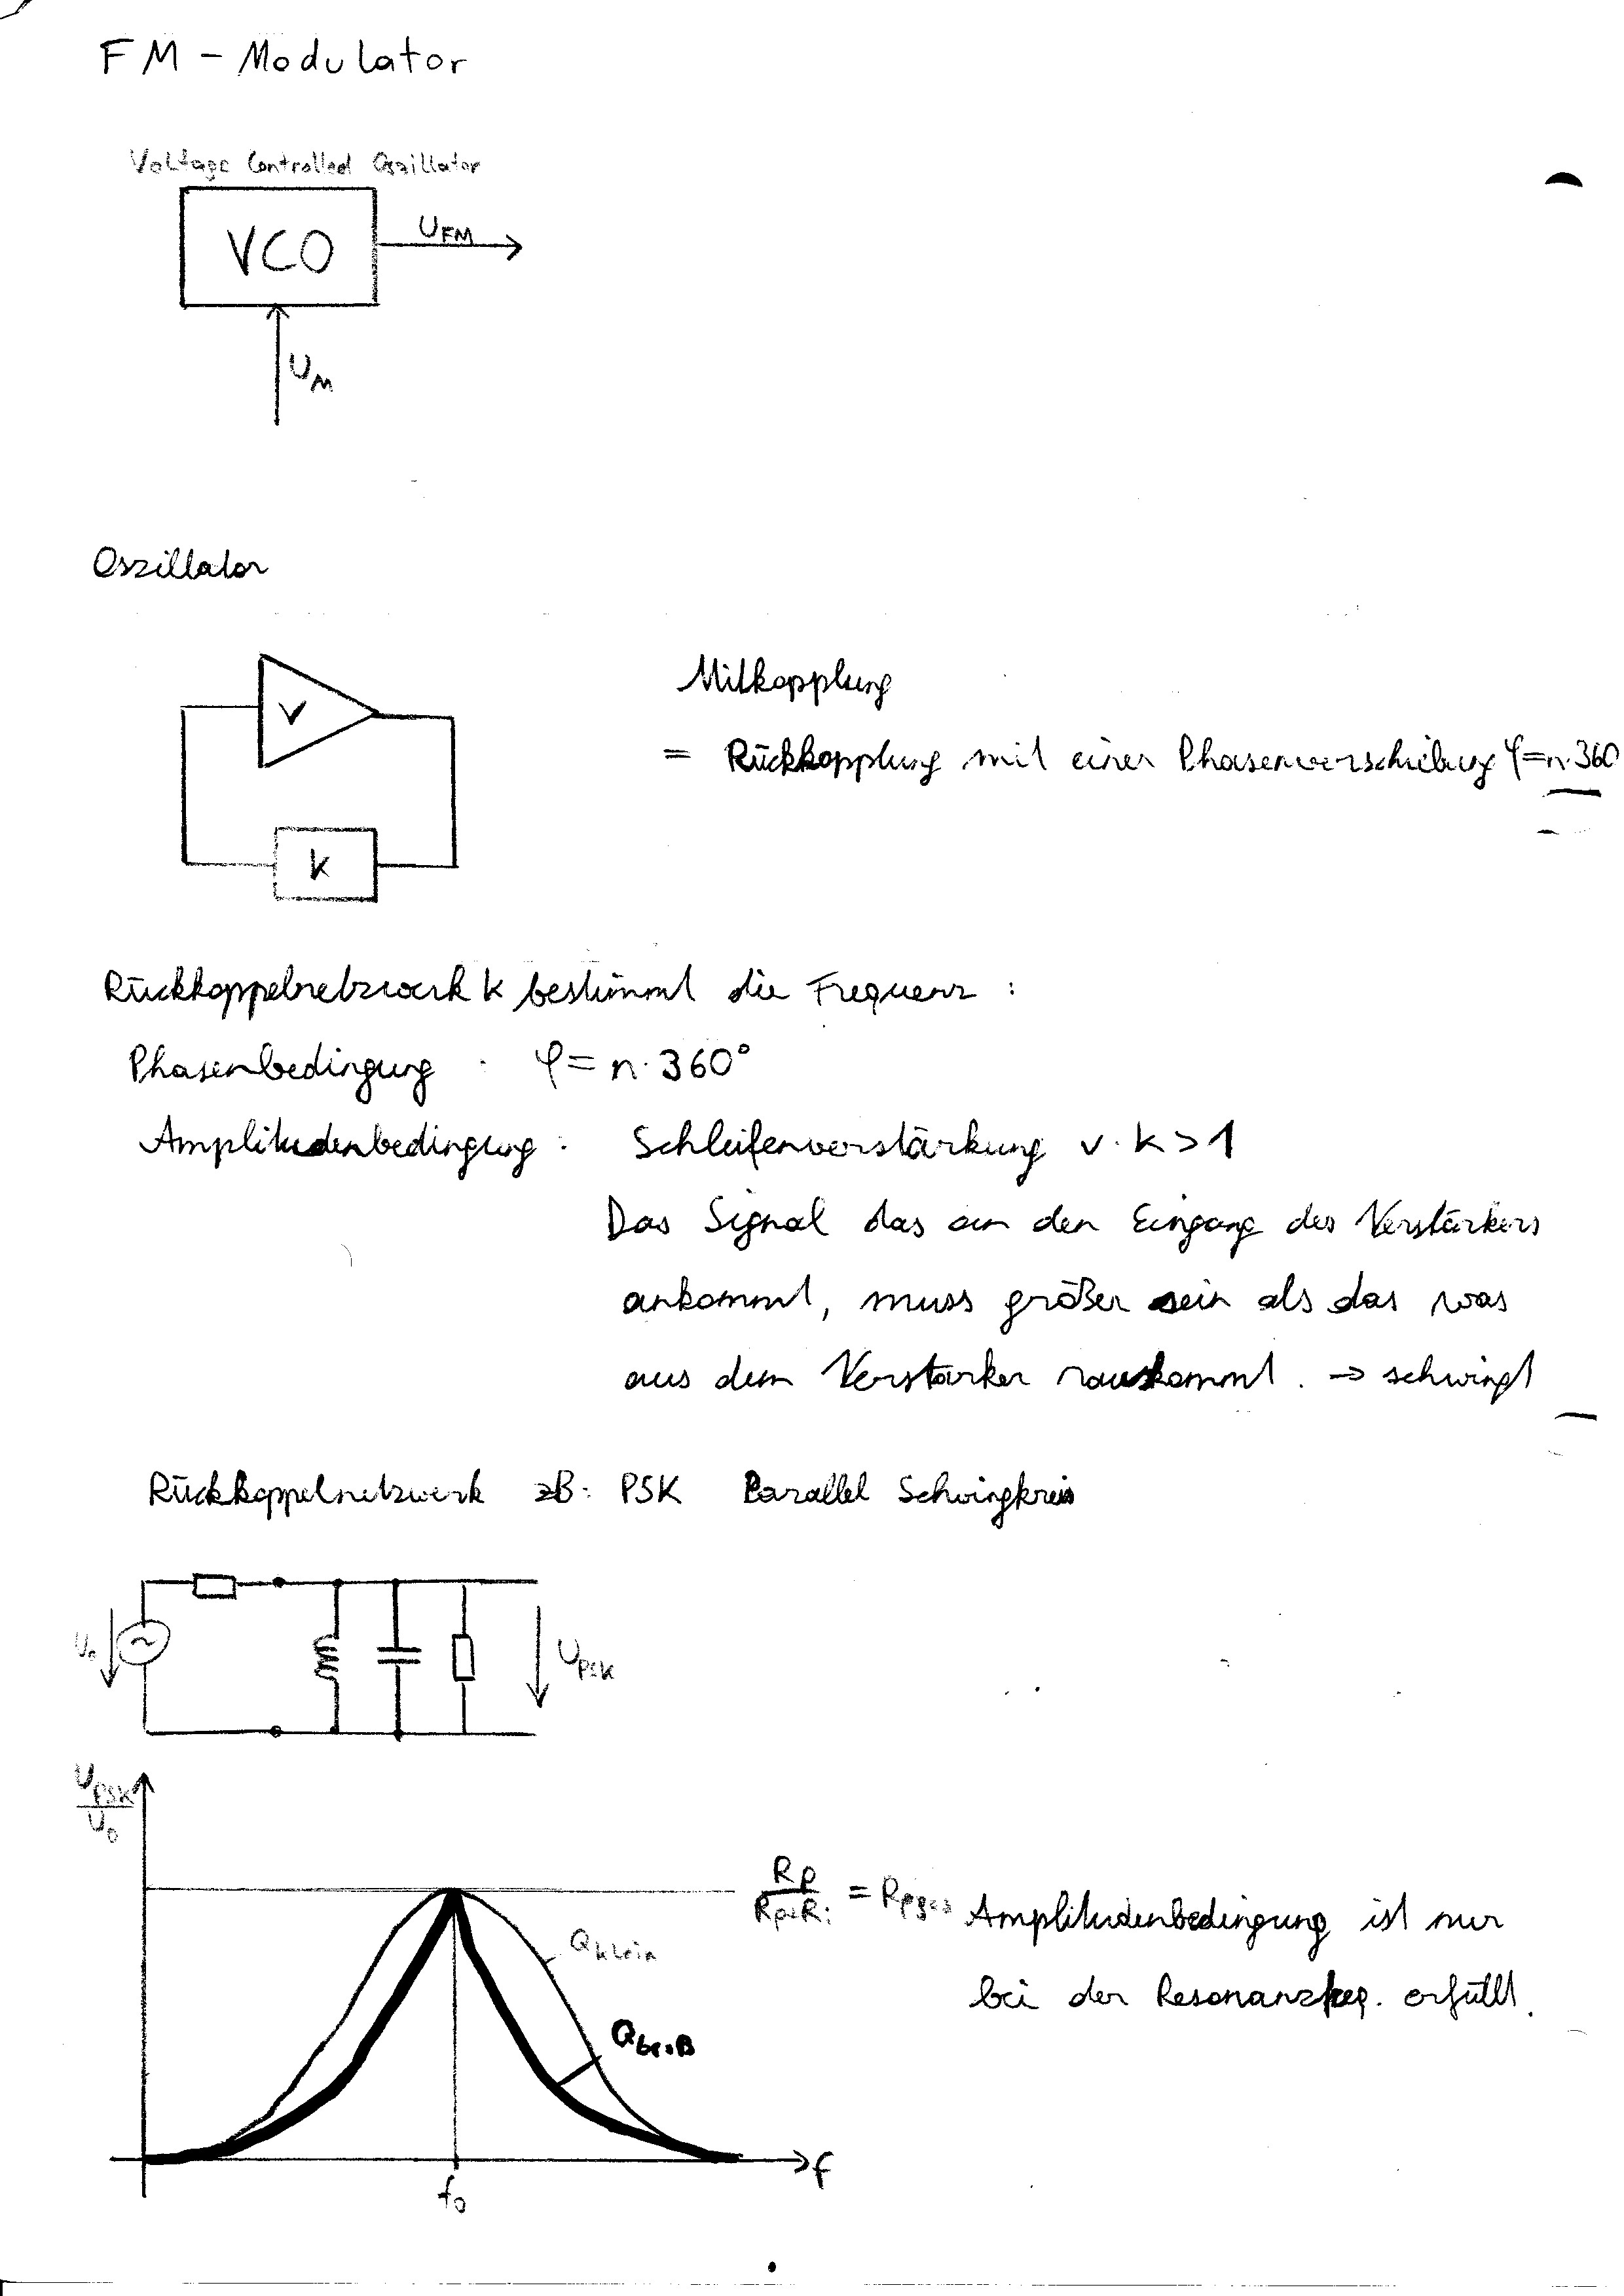 FM - Modulator
Voltage Controlled Oszillator
VCO
U_FM
U_M
Oszillator
V
k
Mitkopplung
= Rückkopplung mit einer Phasenverschiebung φ=n·360
Rückkoppelnetzwerk k bestimmt die Frequenz :
Phasenbedingung : φ = n·360°
Amplitudenbedingung : Schleifenverstärkung v·k > 1
Das Signal das an den Eingang des Verstärkers
ankommt, muss größer sein als das was
aus dem Verstärker rauskommt. → schwingt
Rückkoppelnetzwerk zB: PSK Parallel Schwingkreis
U_0
U_PSK
U_PSK / U_0
R_P / R_P+R_i = R_Pges
Amplitudenbedingung ist nur
bei der Resonanzfreq. erfüllt.
Q_klein
Q_groß
f
f_0